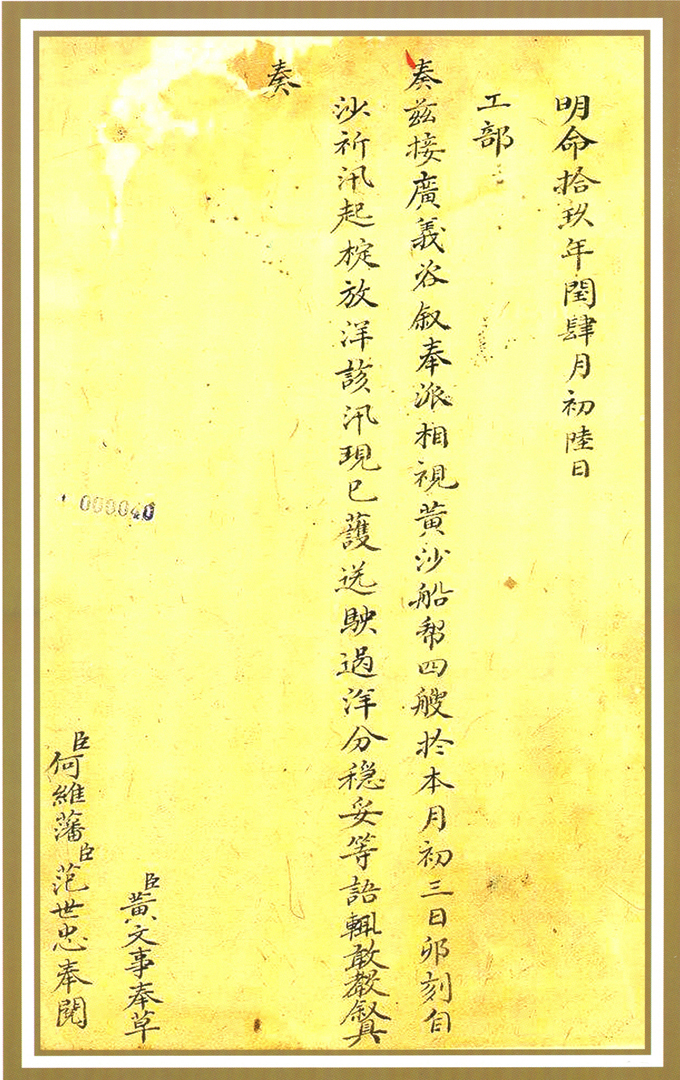 明命拾玖年閏肆月初陸日
工部
奏茲接廣義咨叙奉派相視黄沙船幇四艘於本月初三日卯刻自
沙祈汛起椗放洋該汛現已護送駛過洋分穩妥等語輒敢敷叙具
奏
000040
臣黄文事奉草
臣何維藩臣范世忠奉閱